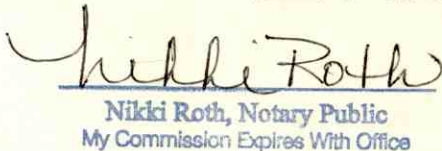 Nikki Roth
Nikki Roth, Notary Public
My Commission Expires With Office